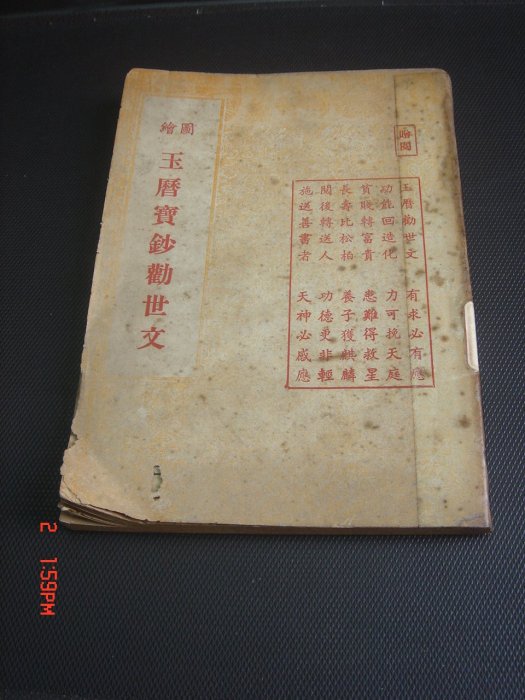 贈閱
玉曆勸世文 有求必有應
功能回造化 力可挽天庭
貧賤轉富貴 患難得救星
長壽比松柏 養子獲麒麟
閱後轉送人 功德更非輕
施送善書者 天神必感應
圖繪
玉曆寶鈔勸世文
2 1:59PM